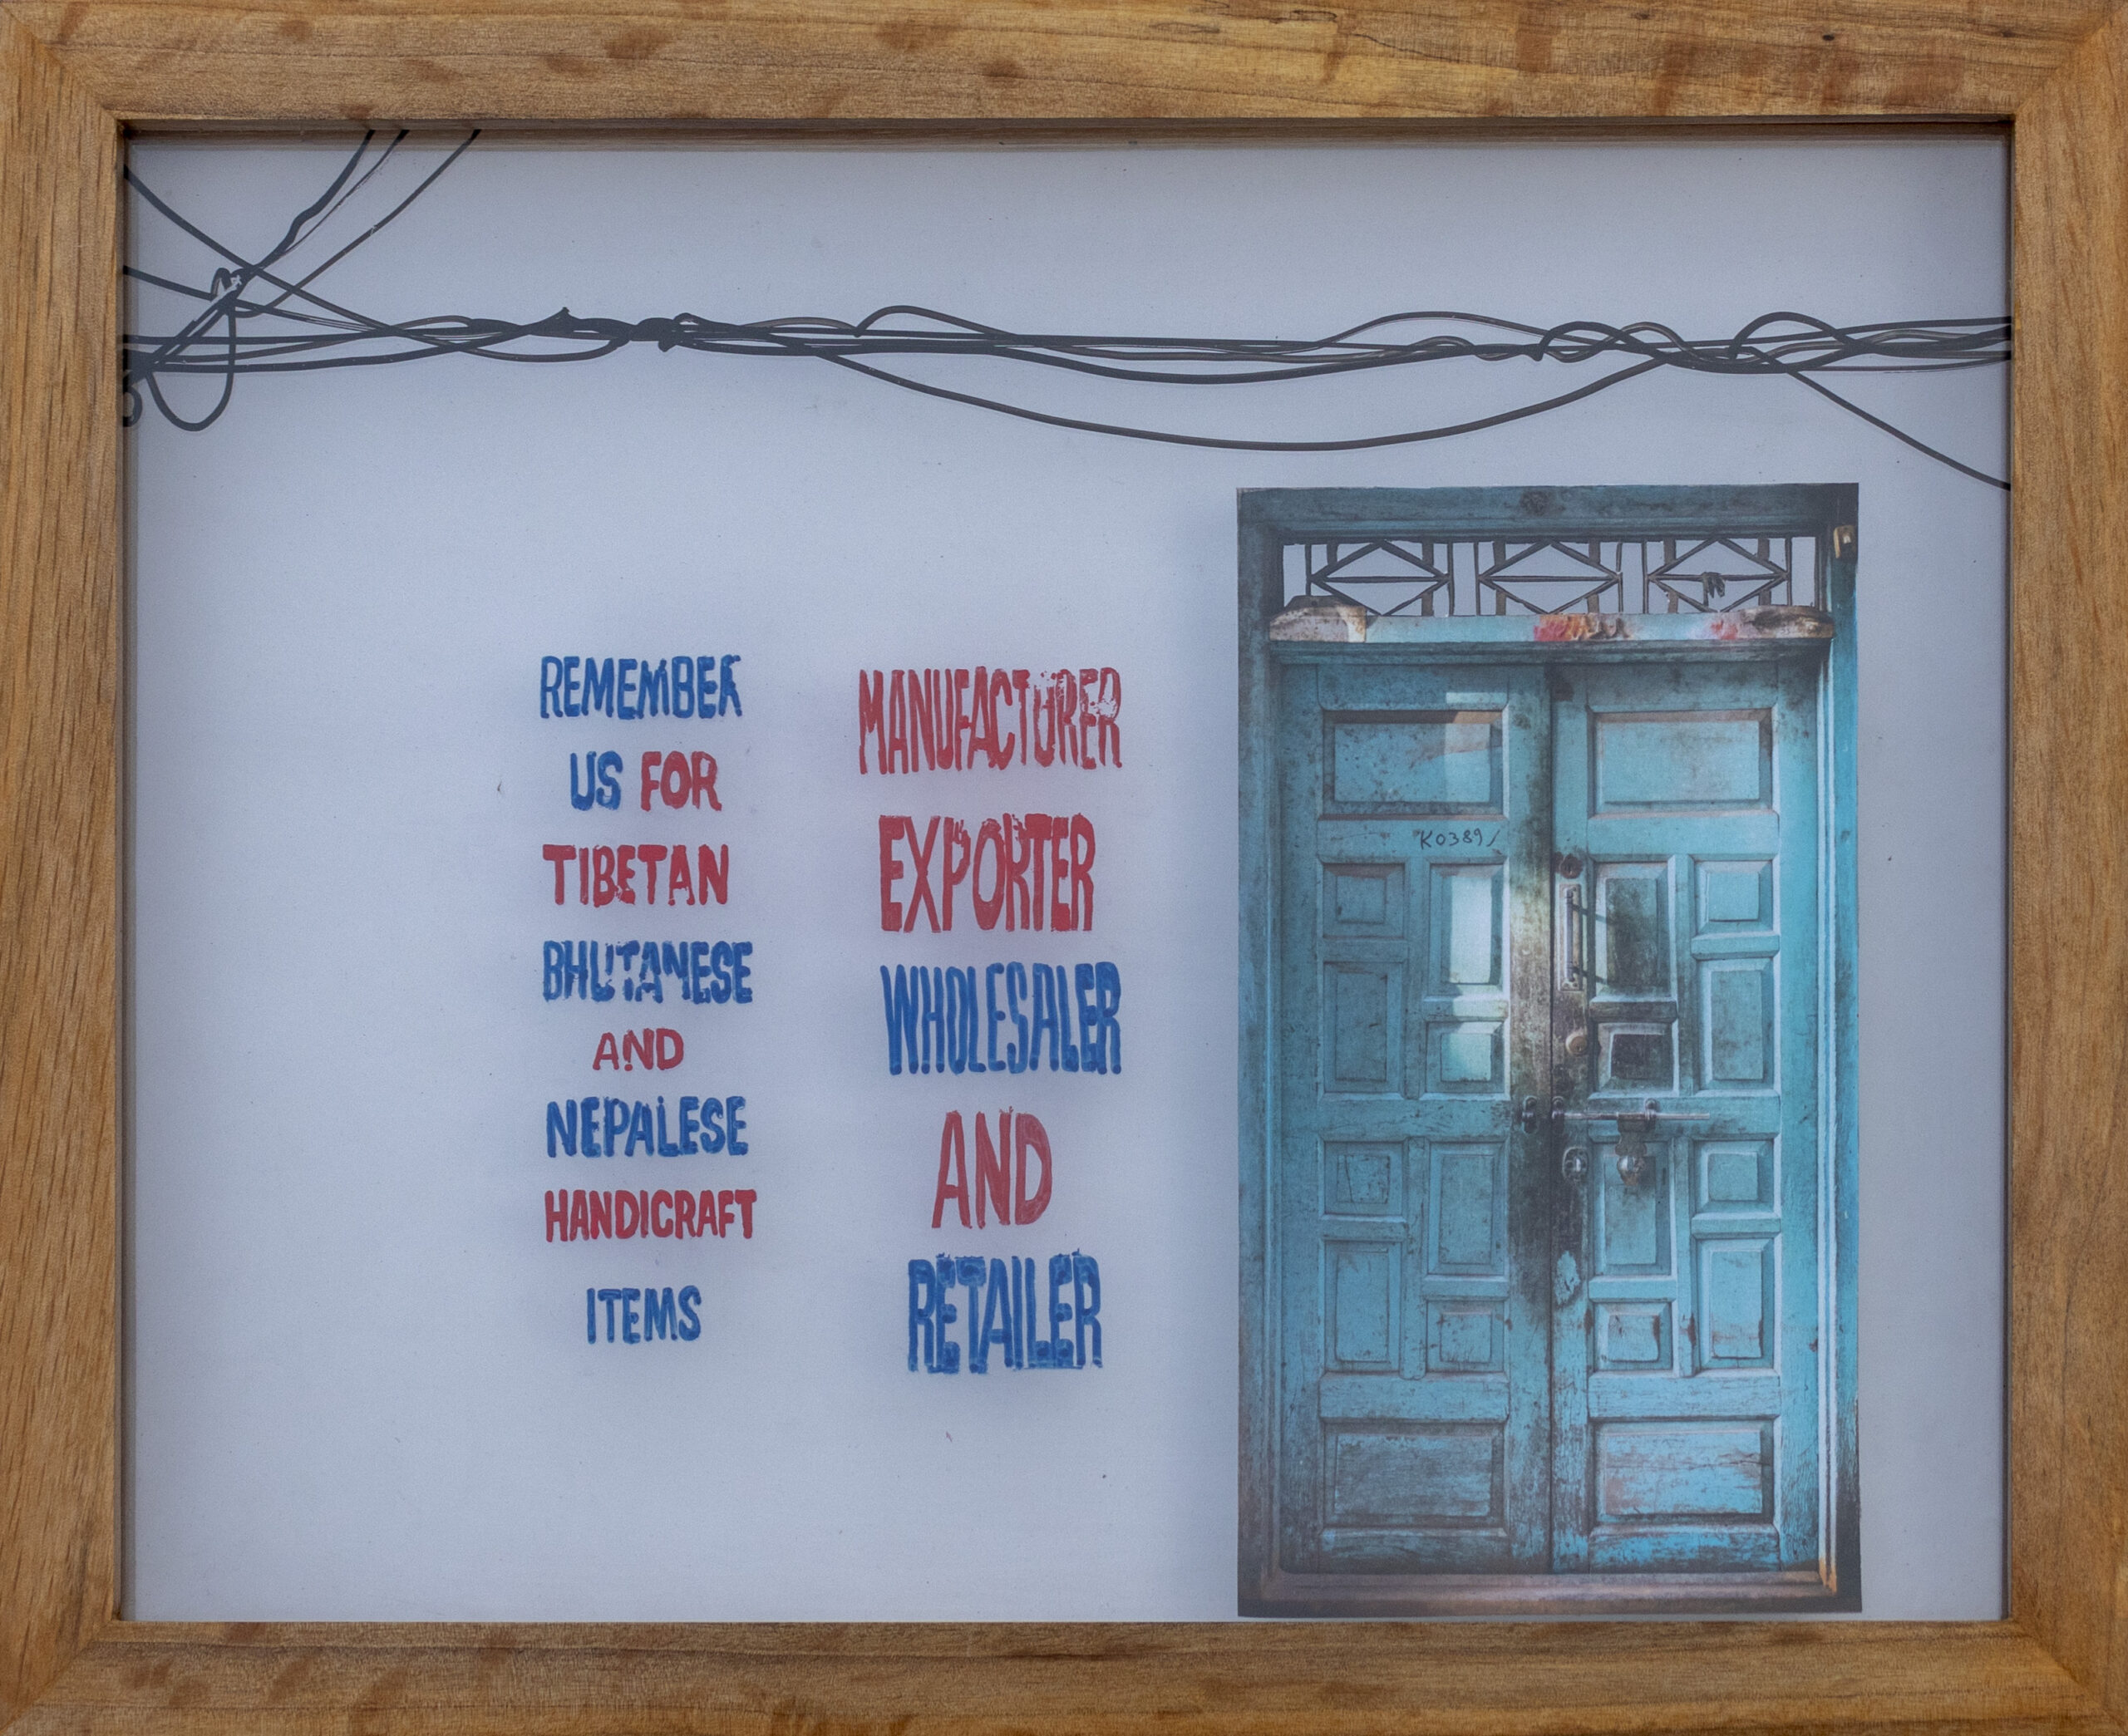 REMEMBER
US FOR
TIBETAN
BHUTANESE
AND
NEPALESE
HANDICRAFT
ITEMS
MANUFACTURER
EXPORTER
WHOLESALER
AND
RETAILER
K0389